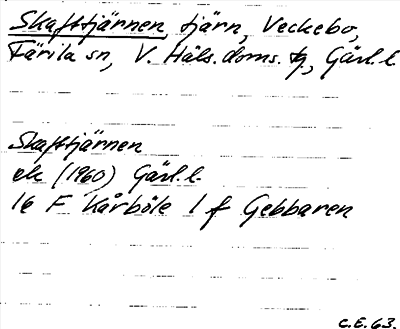 Skaftjärnen, tjärn, Veckebo,
Färila sn, V. Häls. doms. tg, Gävl. l.
Skaftjärnen
ek (1960) Gävl. l.
16 F Kårböle 1 f Gebbaren
C.E. 63.